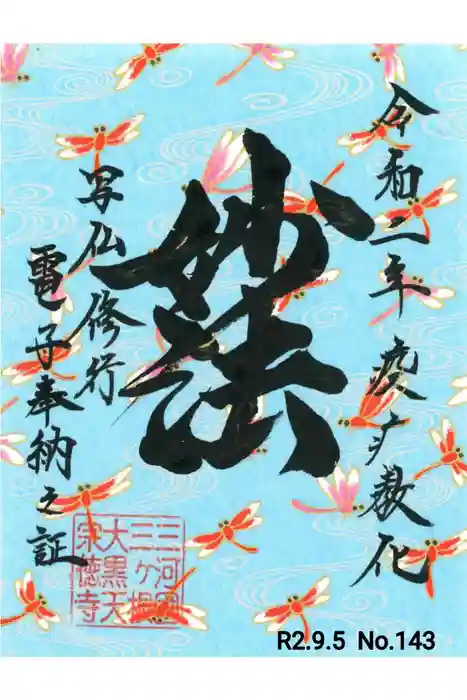 令和二年 疫病教化
妙法
写仏修行
電子奉納之証
三河国
三ヶ根
大黒天
宗徳寺
R2.9.5 No.143